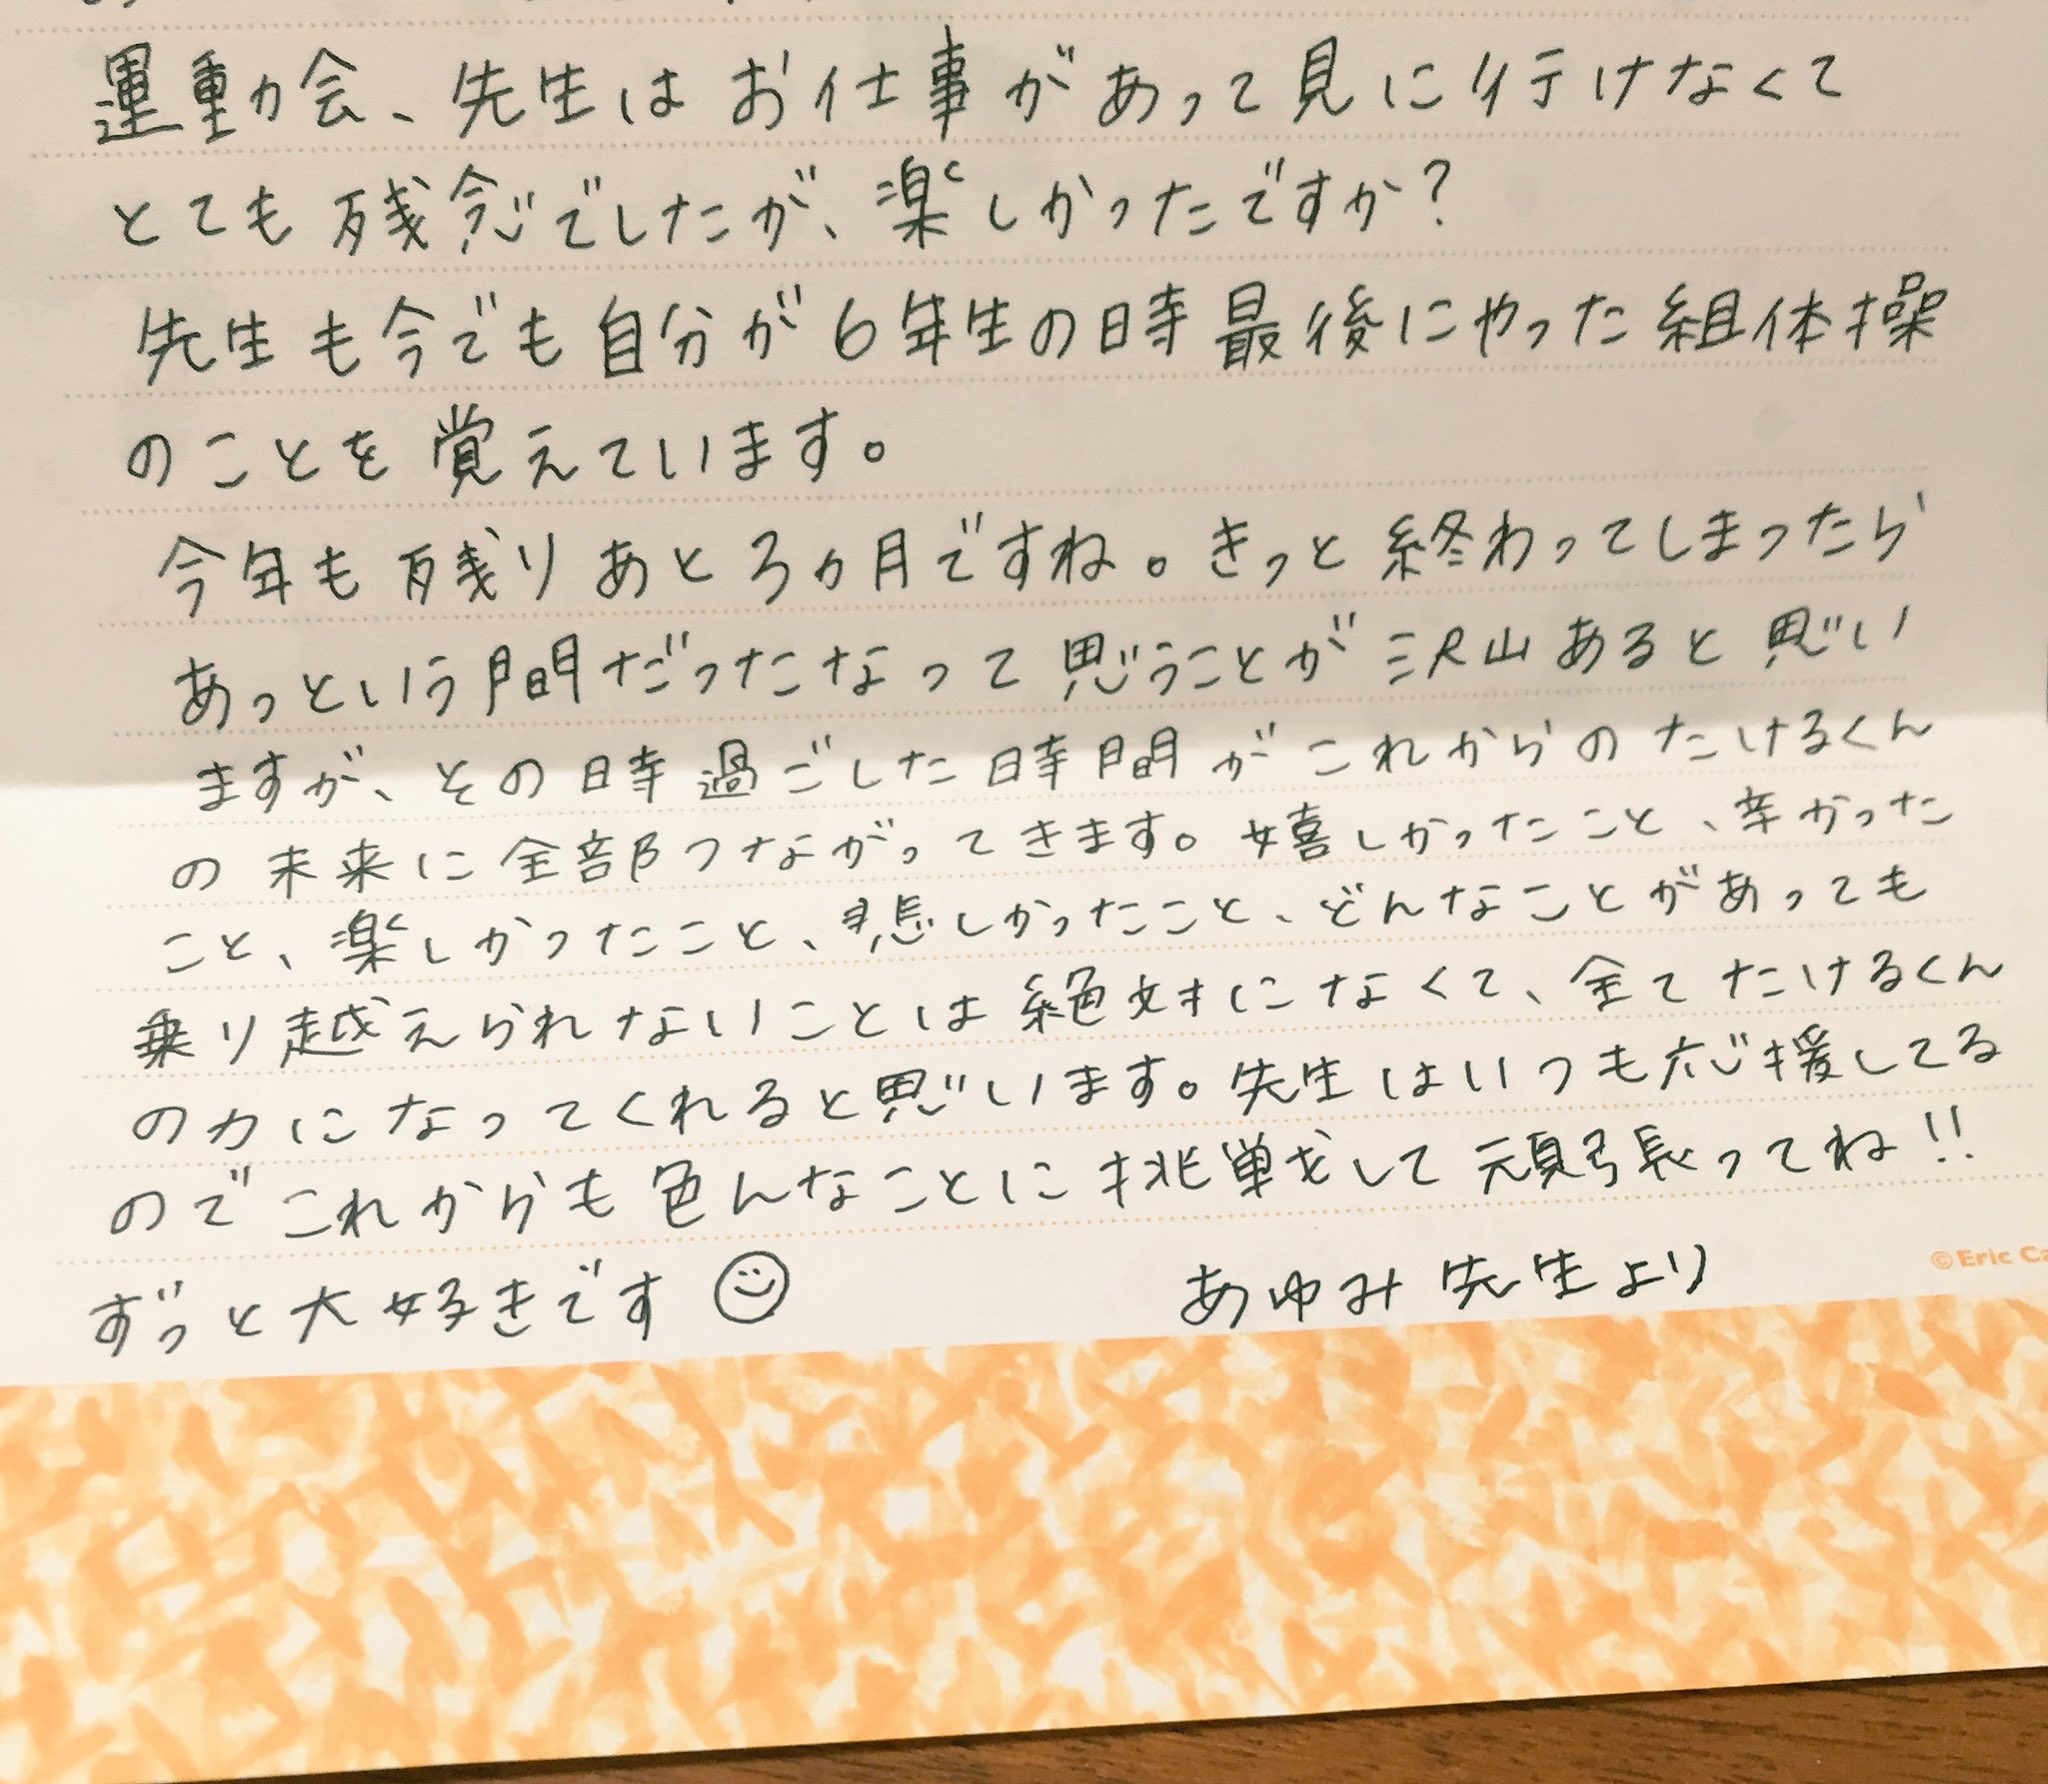 運動会、先生はお仕事があって見に行けなくて
とても残念でしたが、楽しかったですか?
先生も今でも自分が6年生の時最後にやった組体操
のことを覚えています。
今年も残りあと3ヵ月ですね。きっと終わってしまったら
あっという間だったなって思うことが沢山あると思い
ますが、その時過ごした時間がこれからのたけるくん
の未来に全部つながってきます。嬉しかったこと、辛かった
こと、楽しかったこと、悲しかったこと、どんなことがあっても
乗り越えられないことは絶対になくて、全てたけるくん
の力になってくれると思います。先生はいつも応援してる
のでこれからも色んなことに挑戦して頑張ってね!!
ずっと大好きです
あゆみ先生より
©Eric Ca